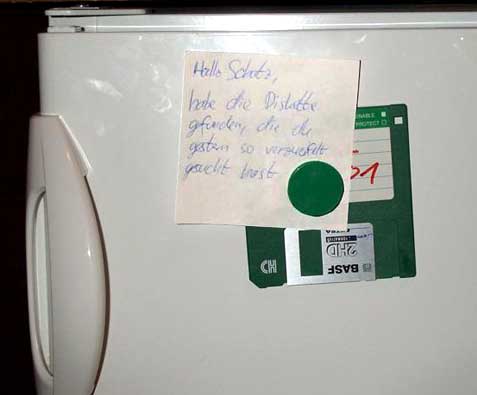 Hallo Schatz,
habe die Diskette
gefunden, die du
gestern so verzweifelt
gesucht hast
ENABLE
PROTECT
51
BASF
2HD
EXTRA
HD